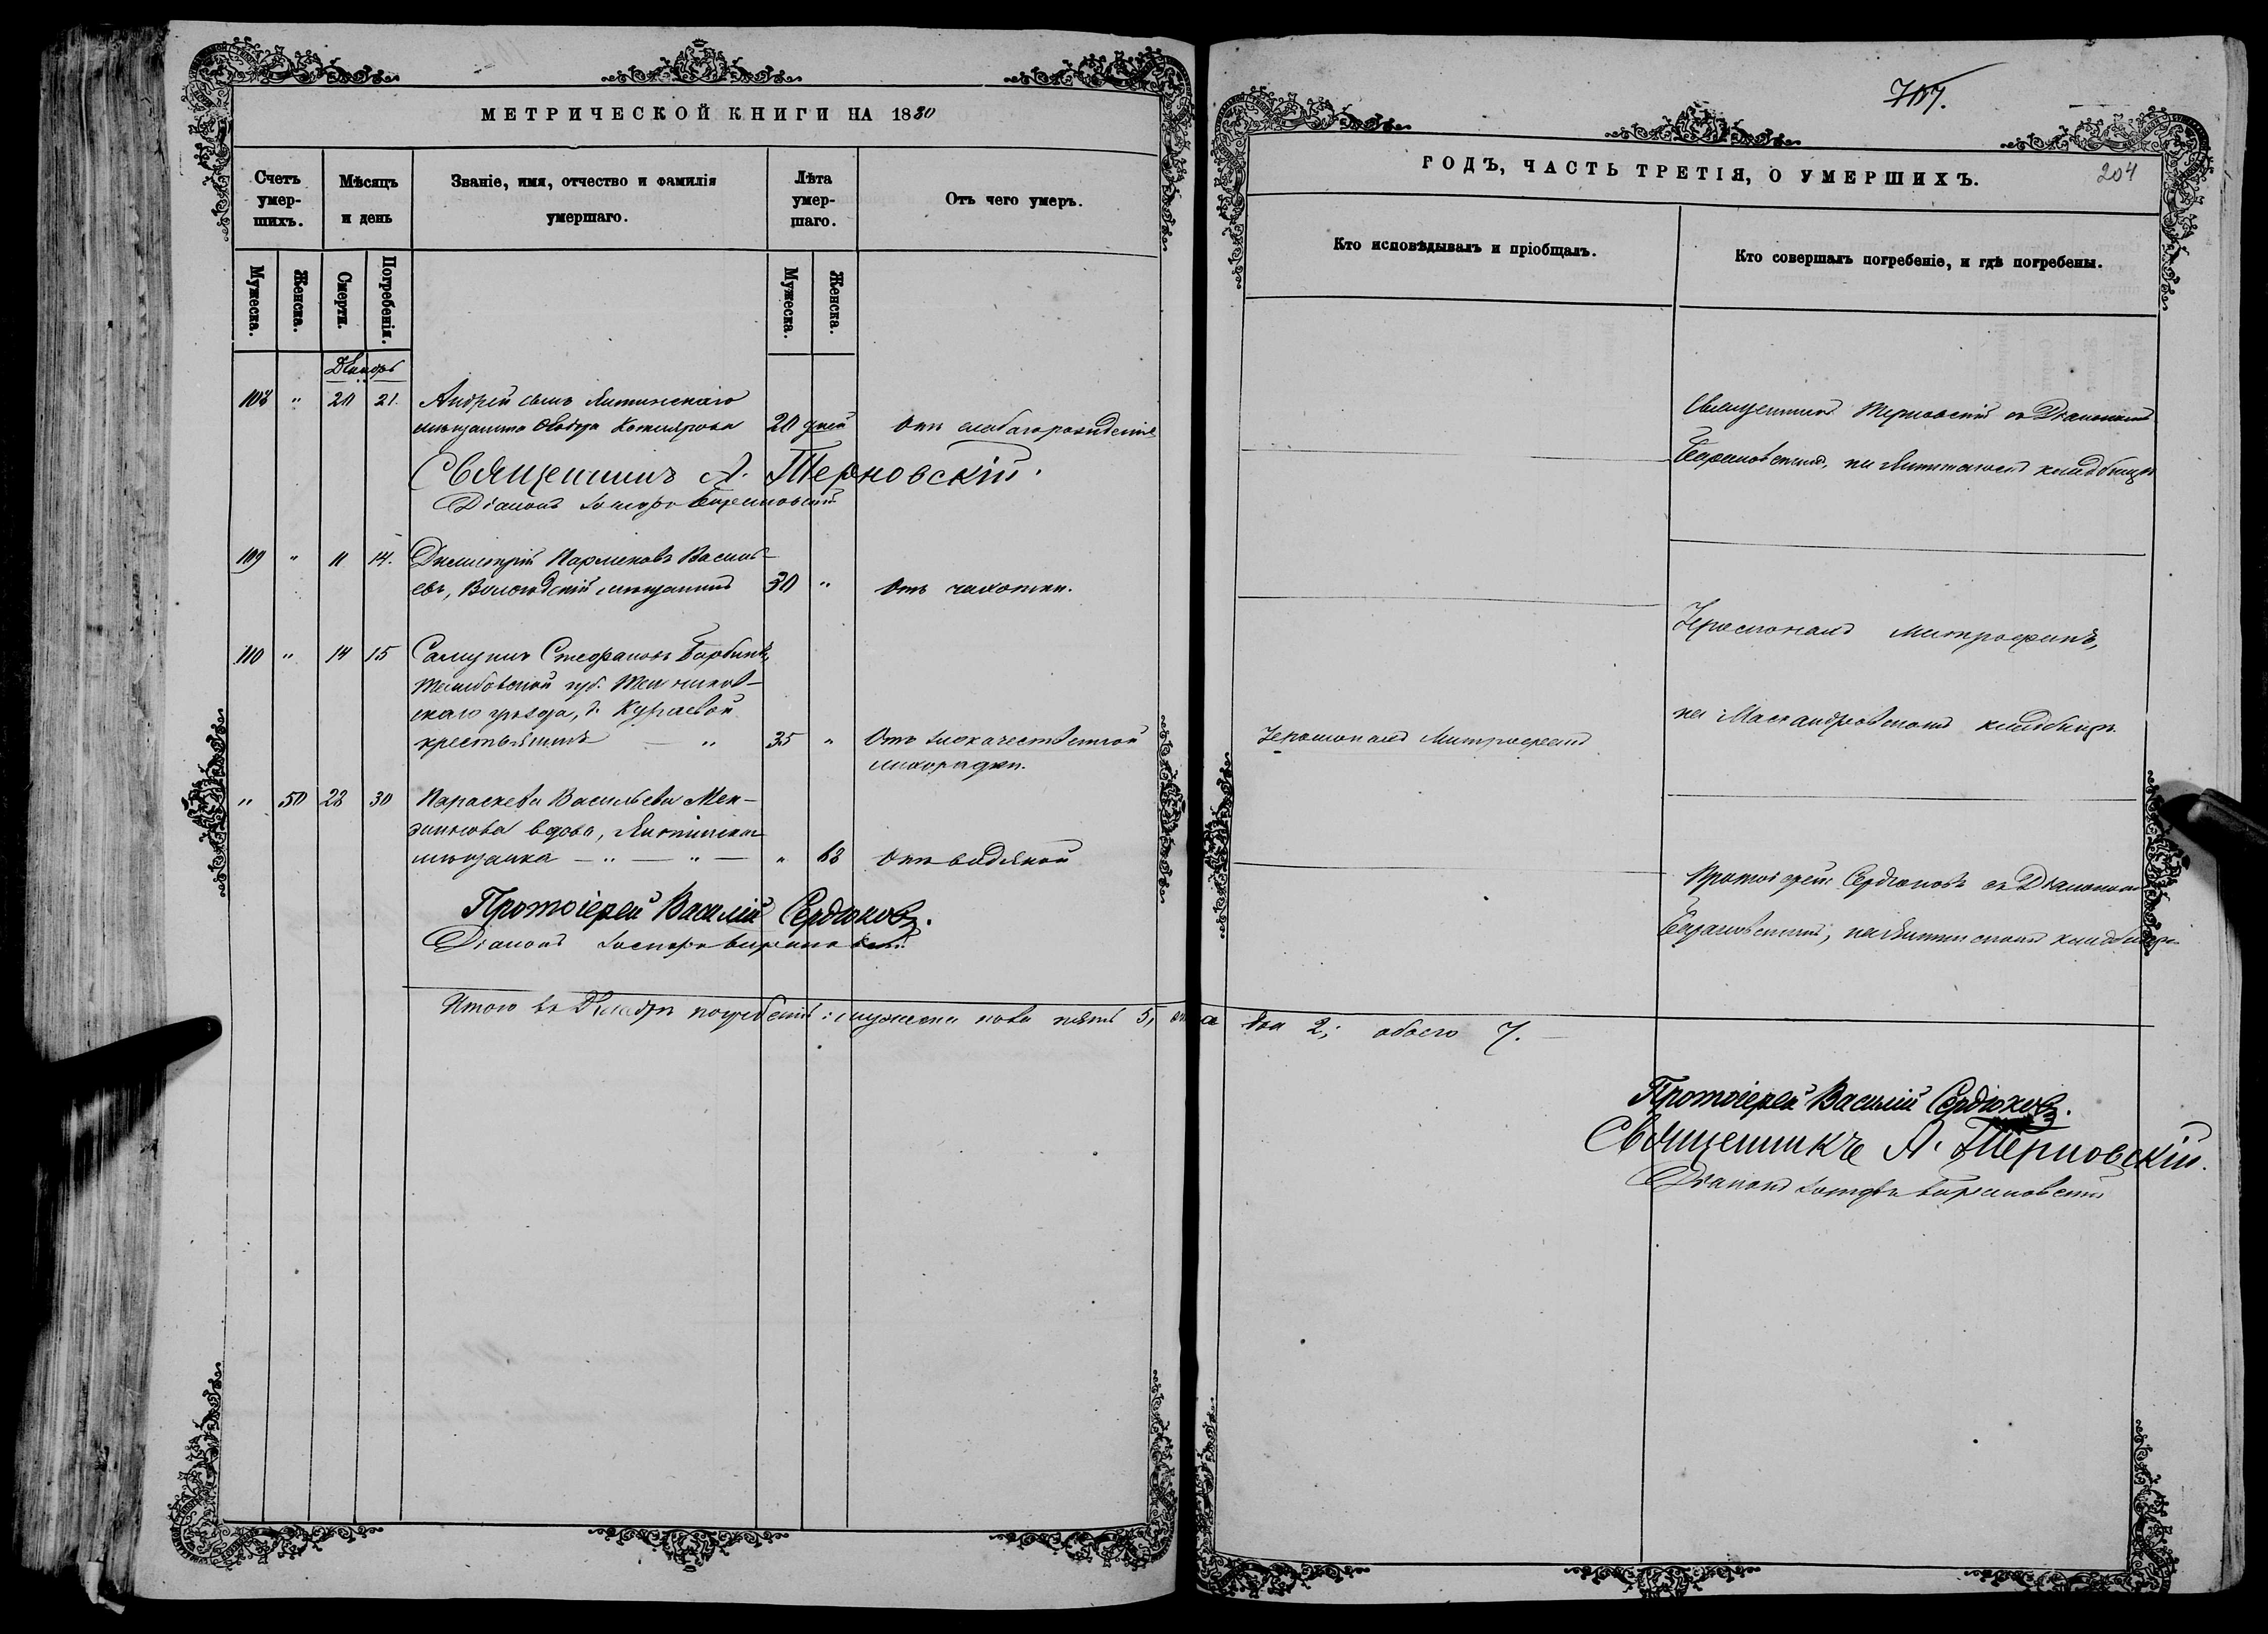 МЕТРИЧЕСКОЙ КНИГИ НА 1880
Счетъ умер-шихъ.
Мѣсяцъ и день
Званіе, имя, отчество и фамилія умершаго.
Лѣта умер-шаго.
Отъ чего умеръ.
Мужеска.
Женска.
Смерти.
Погребенія.
Мужеска.
Женска.
Декабрь
108 " 20 21. Андрей сынъ Ялтинскаго
мѣщанина Ѳедора Котлярова 20 дней Отъ слабаго рожденія
Священникъ А. Терновскій.
Діаконъ Барановскій
109 " 11 14. Димитрій Парменовъ Василь-
евъ, Вологодскій мѣщанинъ 30 " Отъ чахотки.
110 " 14 15 Самуилъ Стефановъ
Тамбовской губ. Темников-
скаго уѣзда, д. Кураевой
крестьянинъ — " 35 " Отъ злокачественной
лихорадки.
" 50 28 30 Параскева Васильева Мек-
вдова, Ялтинская
мѣщанка — " — " — " 68 Отъ водяной
Протоіерей Василій Сердюковъ.
Діаконъ Барановскій
Итого въ Декабрѣ погребено: мужеска пола пять 5,
707.
ГОДЪ, ЧАСТЬ ТРЕТІЯ, О УМЕРШИХЪ.
204
Кто исповѣдывалъ и пріобщалъ.
Кто совершалъ погребеніе, и гдѣ погребены.
Священникъ Терновскій съ Діакономъ
Барановскимъ, на Ялтинскомъ кладбищѣ
Іеромонахъ Митрофанъ,
на Массандровскомъ кладбищѣ.
Іеромонахъ Митрофанъ
Протоіерей Сердюковъ съ Діакономъ
Барановскимъ, на Ялтинскомъ кладбищѣ
два 2; обоего 7.
Протоіерей Василій Сердюковъ.
Священникъ А. Терновскій.
Діаконъ Барановскій